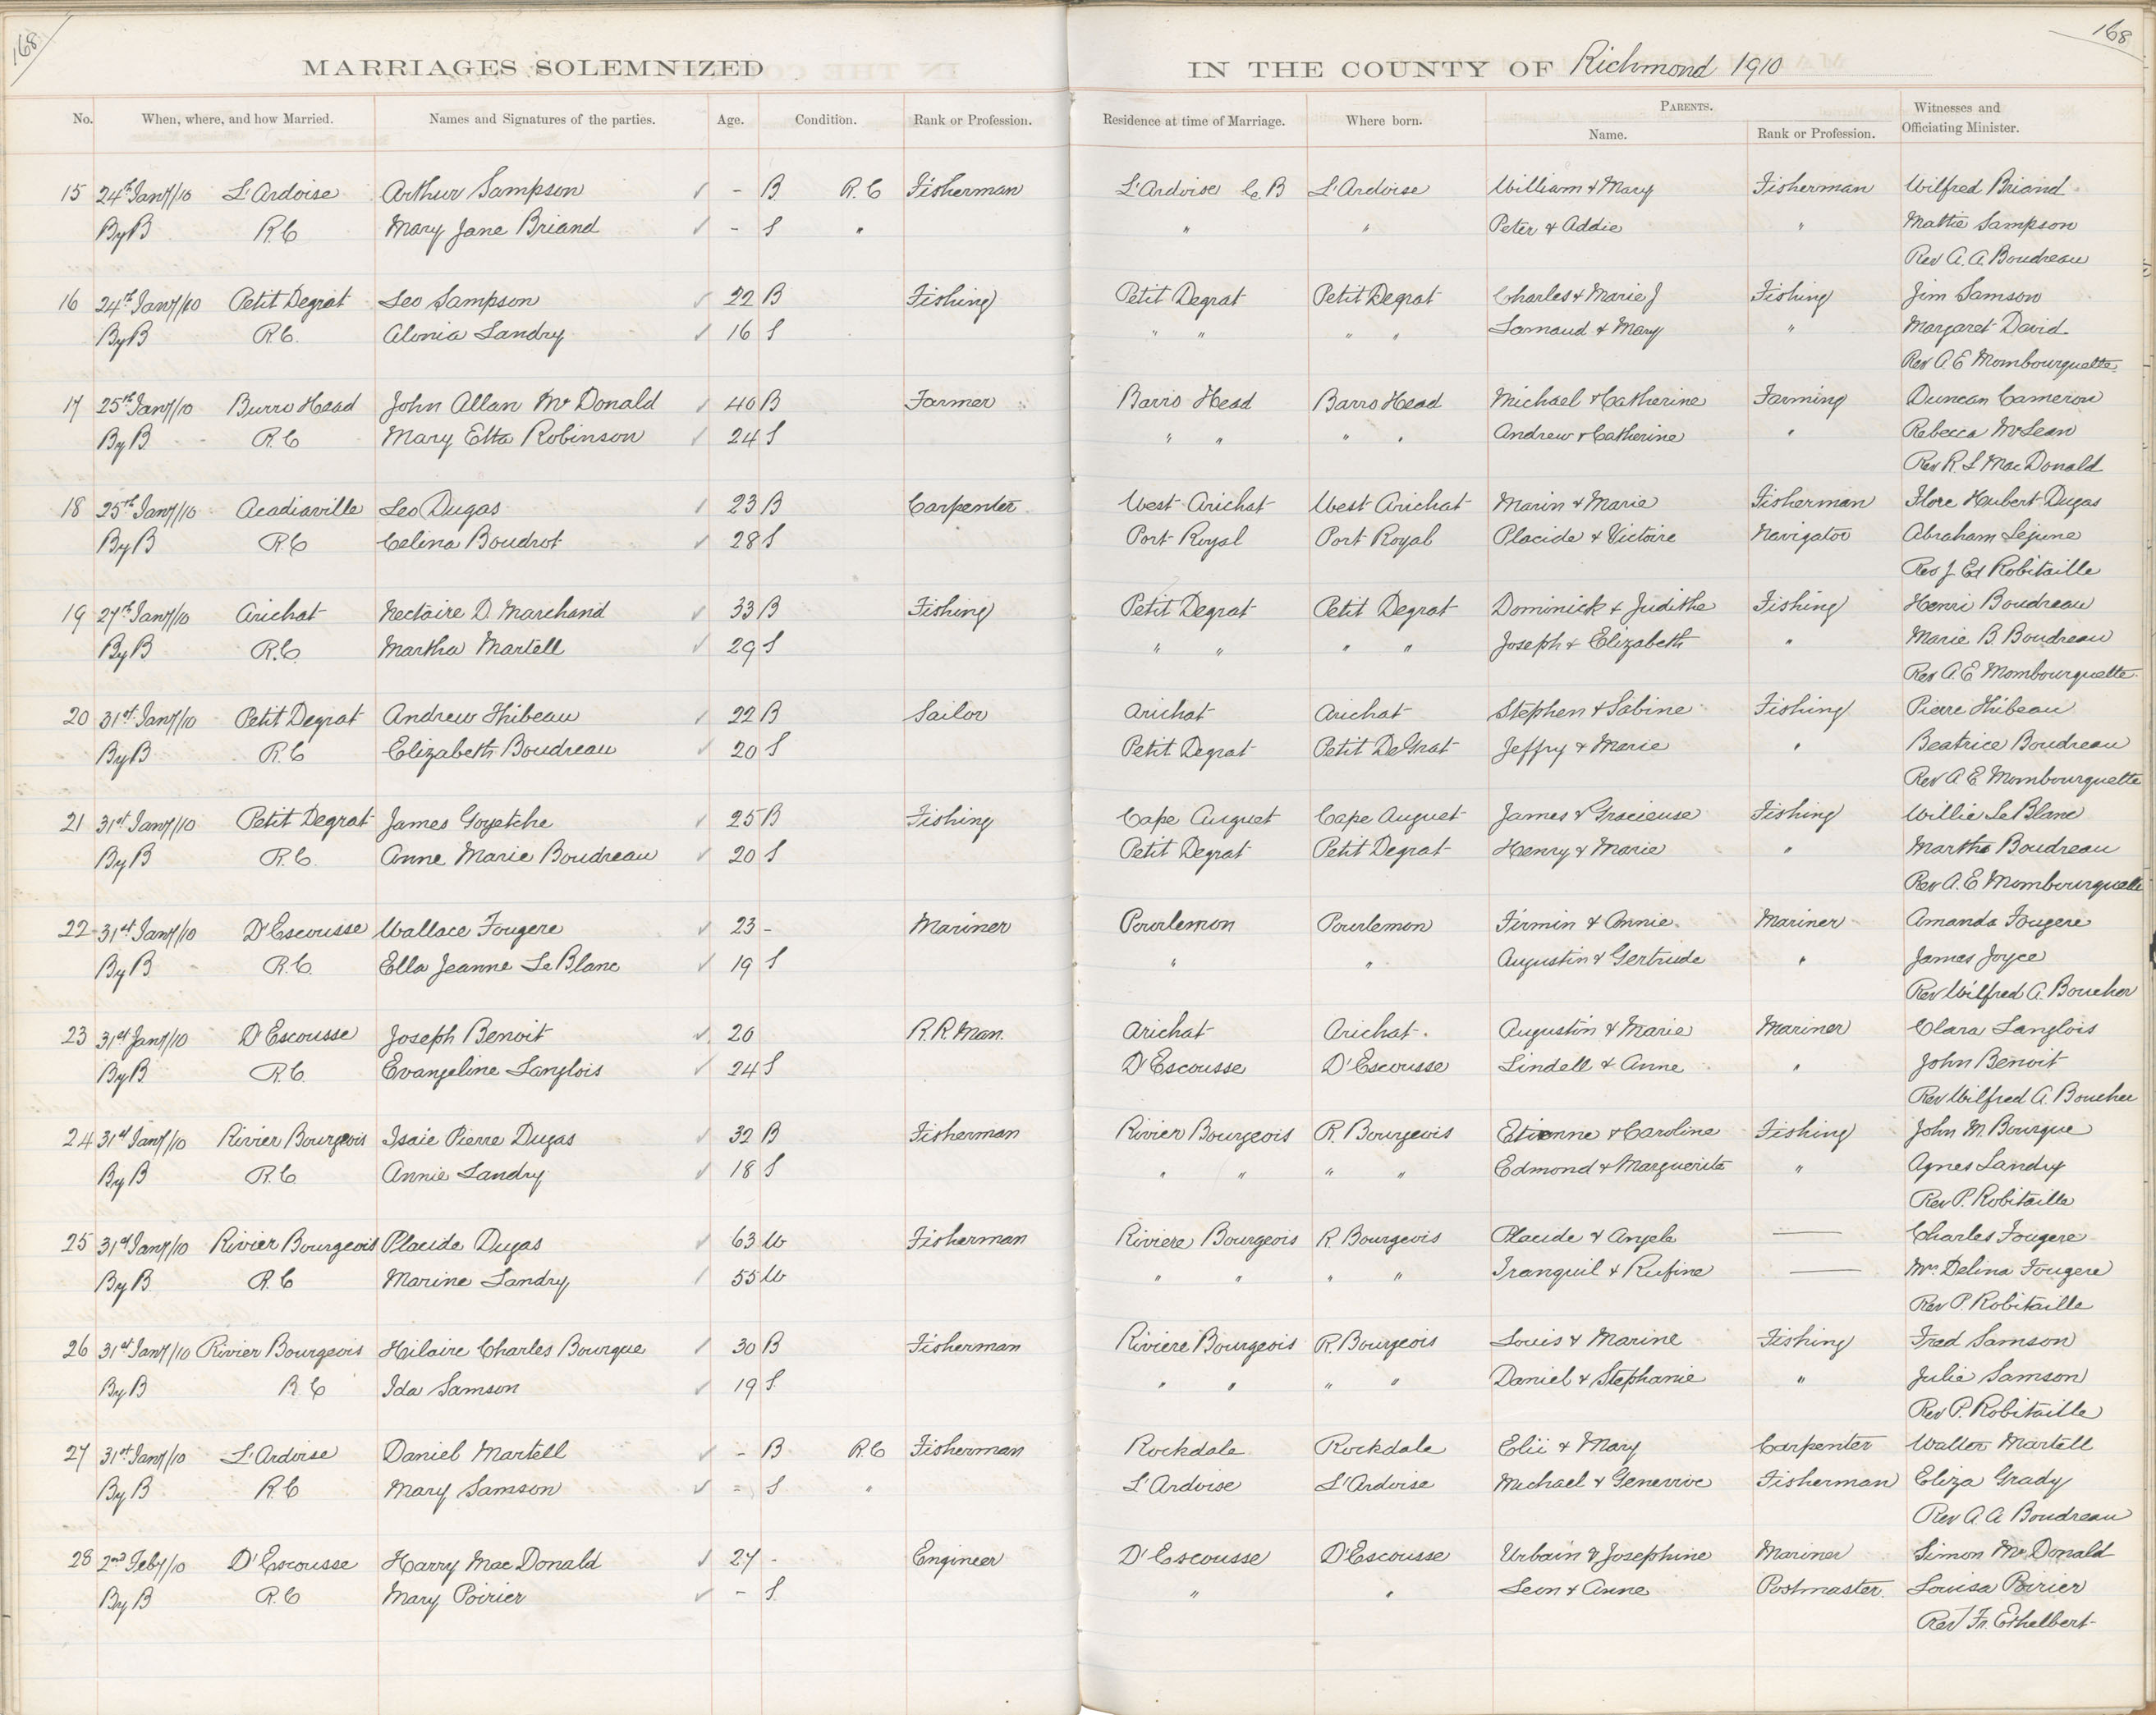 168
168
MARRIAGES SOLEMNIZED IN THE COUNTY OF Richmond 1910
No. When, where, and how Married. Names and Signatures of the parties. Age. Condition. Rank or Profession. Residence at time of Marriage. Where born. PARENTS. Name. Rank or Profession. Witnesses and Officiating Minister.
15 24th Jany/10 L'Ardoise Arthur Sampson - B R.C Fisherman L'Ardoise C.B L'Ardoise William & Mary Fisherman Wilfred Briand
By B R.C Mary Jane Briand - S " " " Peter & Addie " Mattie Sampson
Rev A. A. Boudreau
16 24th Jany/10 Petit Degrat Leo Sampson 22 B Fishing Petit Degrat Petit Degrat Charles & Marie J Fishing Jim Samson
By B R.C. Alonia Landry 16 S " " " " Lamaud & Mary " Margaret David
Rev A E Mombourquette
17 25th Jany/10 Burro Head John Allan McDonald 40 B Farmer Barro Head Barro Head Michael & Catherine Farming Duncan Cameron
By B R.C Mary Etta Robinson 24 S " " " " Andrew & Catherine " Rebecca McLean
Rev R. L MacDonald
18 25th Jany/10 Acadiaville Leo Dugas 23 B Carpenter West Arichat West Arichat Marin & Marie Fisherman Flore Hubert Dugas
By B R.C Celina Boudrot 28 S Port Royal Port Royal Placide & Victoire Navigator Abraham Lejune
Rev J Ed Robitaille
19 27th Jany/10 Arichat Nectaire D. Marchand 33 B Fishing Petit Degrat Petit Degrat Dominick & Judithe Fishing Henri Boudreau
By B R.C. Martha Martell 29 S " " " " Joseph & Elizabeth " Marie B. Boudreau
Rev A. E Mombourquette
20 31st Jany/10 Petit Degrat Andrew Thibeau 22 B Sailor Arichat Arichat Stephen & Sabine Fishing Pierre Thibeau
By B R.C Elizabeth Boudreau 20 S Petit Degrat Petit DeGrat Jeffry & Marie " Beatrice Boudreau
Rev A E Mombourquette
21 31st Jany/10 Petit Degrat James Goyetche 25 B Fishing Cape Auguet Cape Auguet James & Gracieuse Fishing Willie LeBlanc
By B R.C. Anne Marie Boudreau 20 S Petit Degrat Petit Degrat Henry & Marie " Martha Boudreau
Rev A. E Mombourquette
22 31st Jany/10 D'Escousse Wallace Fougere 23 - Mariner Pourlemon Pourlemon Firmin & Annie Mariner Amanda Fougere
By B R.C. Ella Jeanne LeBlanc 19 S " " Augustin & Gertrude " James Joyce
Rev Wilfred A. Boucher
23 31st Jany/10 D'Escousse Joseph Benoit 20 R.R. Man. Arichat Arichat. Augustin & Marie Mariner Clara Langlois
By B R.C. Evangeline Langlois 24 S D'Escousse D'Escousse Lindell & Anne " John Benoit
Rev Wilfred A. Boucher
24 31st Jany/10 Rivier Bourgeois Isaie Pierre Dugas 32 B Fisherman Rivier Bourgeois R. Bourgeois Etienne & Caroline Fishing John M. Bourque
By B R.C Annie Landry 18 S " " " " Edmond & Marguerite " Agnes Landry
Rev P. Robitaille
25 31st Jany/10 Rivier Bourgeois Placide Dugas 63 W Fisherman Riviere Bourgeois R. Bourgeois Placide & Angele — Charles Fougere
By B R.C Marine Landry 55 W " " " " Tranquil & Rufine — Mrs Delina Fougere
Rev P. Robitaille
26 31st Jany/10 Rivier Bourgeois Hilaire Charles Bourque 30 B Fisherman Riviere Bourgeois R. Bourgeois Louis & Marine Fishing Fred Samson
By B R.C Ida Samson 19 S. " " " " Daniel & Stephanie " Julie Samson
Rev P. Robitaille
27 31st Jany/10 L'Ardoise Daniel Martell - B R.C Fisherman Rockdale Rockdale Elii & Mary Carpenter Walter Martell
By B R.C Mary Samson - S " L'Ardoise L'Ardoise Michael & Genevive Fisherman Eliza Grady
Rev A. A Boudreau
28 2nd Feby/10 D'Escousse Harry MacDonald 27 - Engineer D'Escousse D'Escousse Urbain & Josephine Mariner Simon McDonald
By B R.C Mary Poirier - S. " " Leon & Anne Postmaster. Louisa Poirier
Rev Fr. Ethelbert